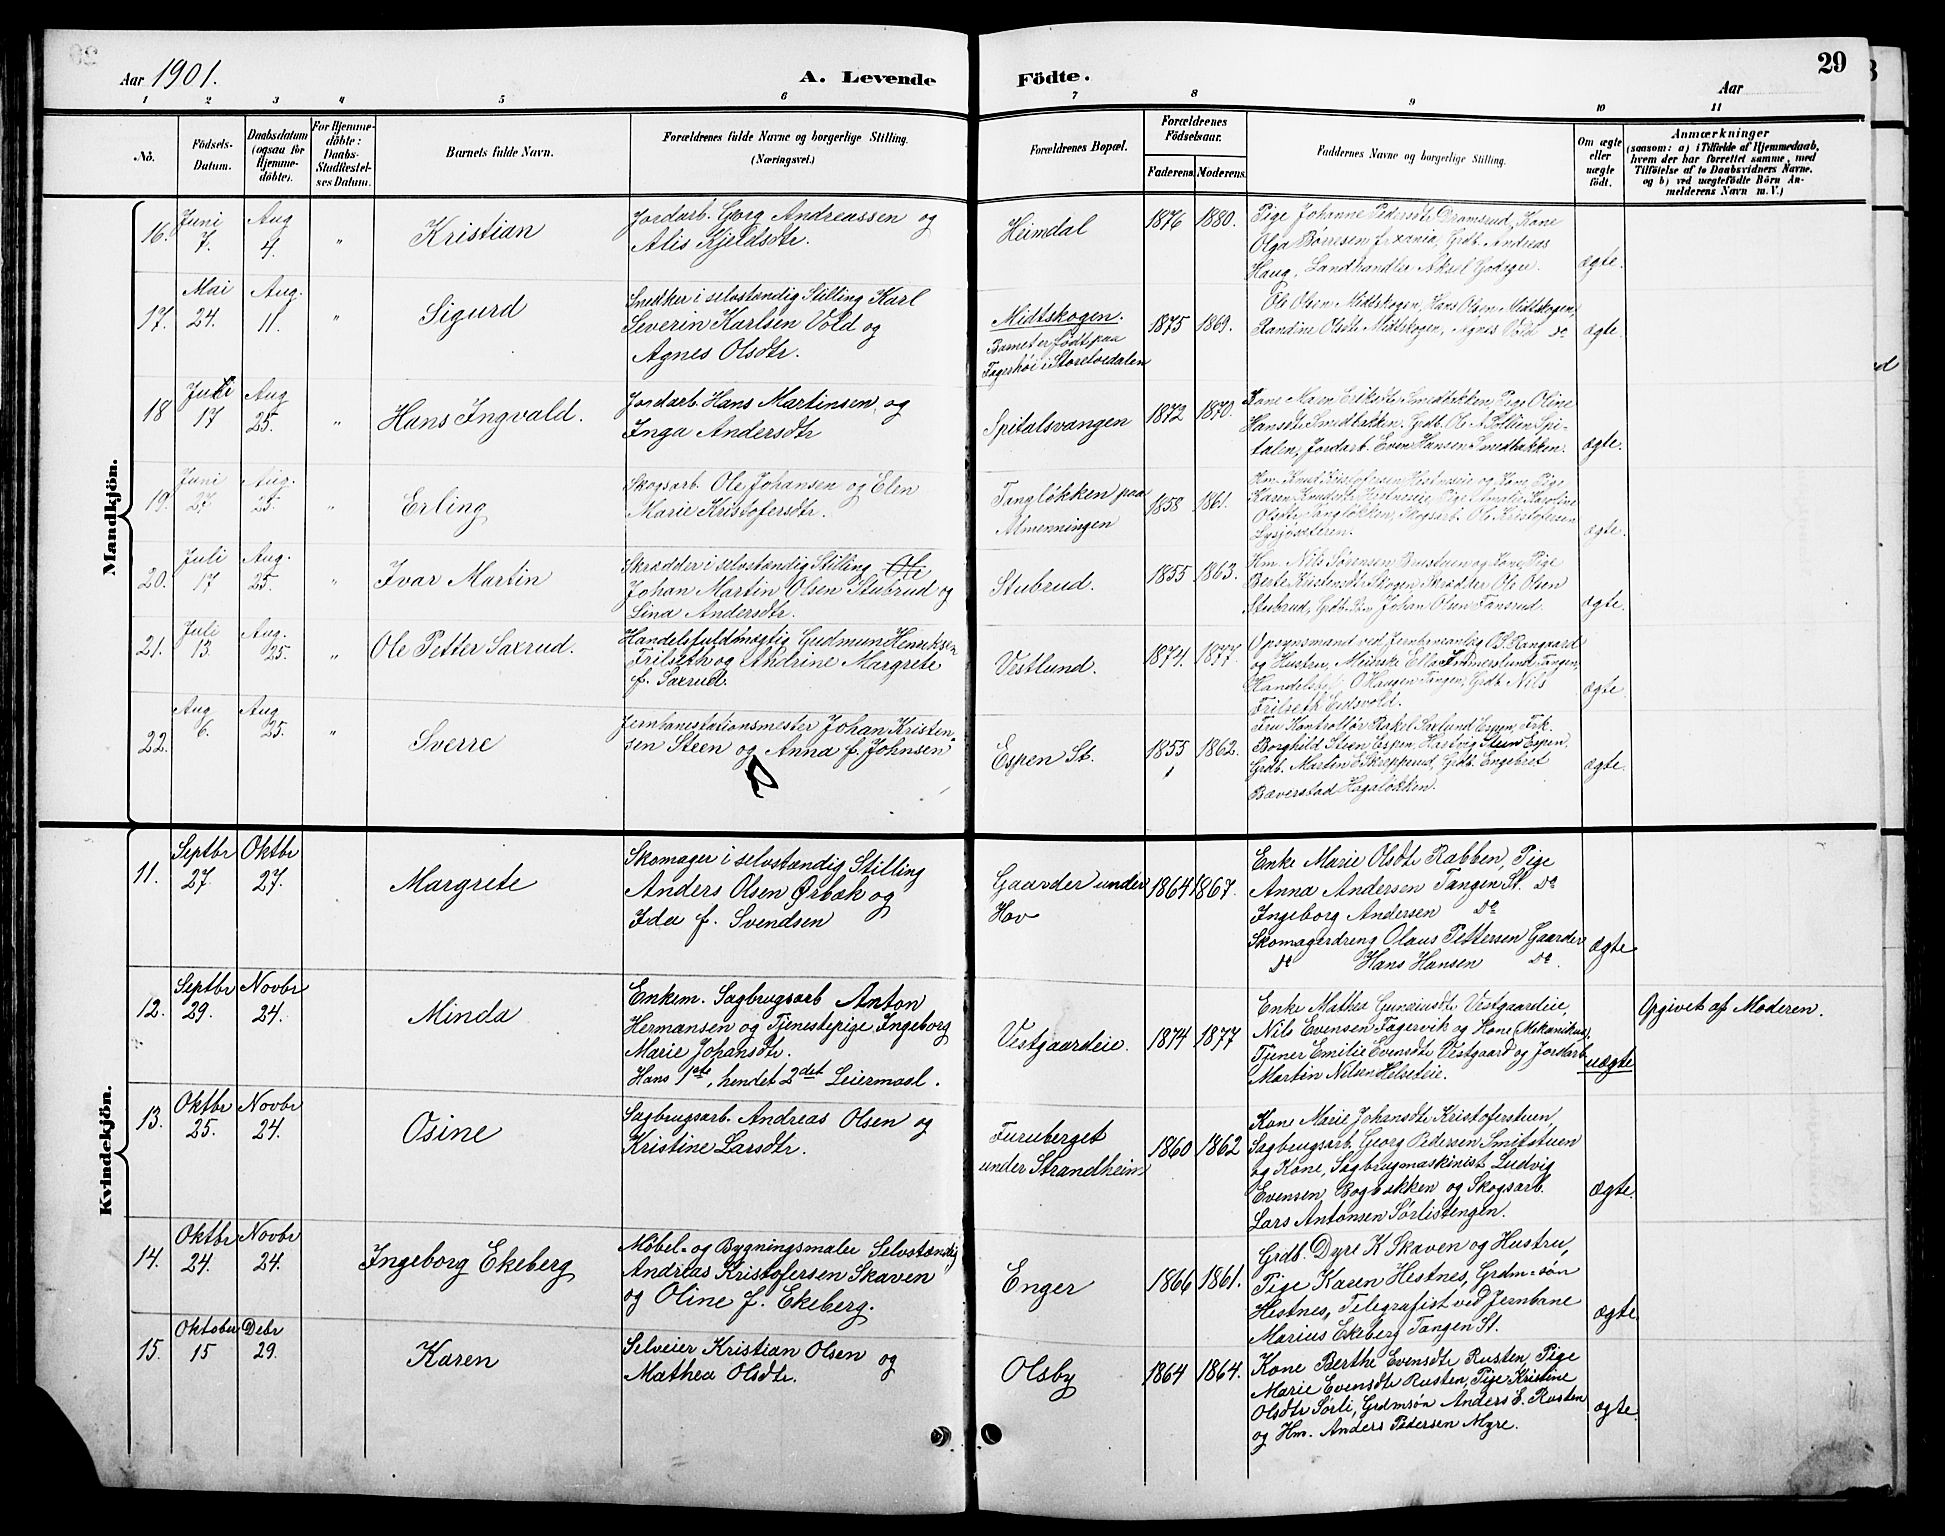 Aar 1901.
A. Levende Födte.
Aar
29
1 2 3 4 5 6 7 8 9 10 11
No.
Födsels-Datum.
Daabsdatum (ogsaa for Hjemmedöbte).
For Hjemmedöbte: Daabs-Stadfæstelses Datum.
Barnets fulde Navn.
Forældrenes fulde Navne og borgerlige Stilling. (Næringsvei.)
Forældrenes Bopæl.
Forældrenes Födselsaar. Faderens. Moderens.
Faddernes Navne og borgerlige Stilling.
Om ægte eller uægte födt.
Anmærkninger
(saasom: a) i Tilfælde af Hjemmedaab,
hvem der har forrettet samme, med
Tilföielse af to Daabsvidners Navne.
og b) ved uægtefödte Börn An-
melderens Navn m. V.)
Mandkjön.
16. Juni 7. Aug 4. " Kristian
Jordarb. Georg Andreassen og
Alis Kjeldsdtr.
Heimdal 1876 1880.
Pige Johanne Pedersdtr Dramsrud, Kone
Olga Börresen f. xania, Grdb. Andreas
Haug, Landhandler Aksel Godager. ægte.
17. Mai 24. Aug. 11. " Sigurd
Snedker i selvstændig Stilling Karl
Severin Karlsen Vold og
Agnes Olsdtr.
Midtskogen.
Barnet er födt paa
Fagerhöi i Storelvedalen
1875 1869.
Ole Olsen Midtskogen, Hans Olsen Midtskogen,
Randine Olsdtr Midtskogen, Agnes Vold do ægte.
18 Juli 17 Aug 25. " Hans Ingvald.
Jordarb. Hans Martinsen og
Inga Andersdtr
Spitalsvangen 1872 1870.
Kone Maren Eriksdtr Smedbakken, Pige Oline
Hansdtr Smedbakken, Grdb. Ole A Kollien Spi-
talen, Jordarb. Even Hansen Smedbakken. ægte.
19. Juni 27 Aug. 25. " Erling
Skogsarb. Ole Johansen og Elen
Marie Kristofersdtr.
Tangløkken paa
Almenningen
1858 1861.
Hm. Knud Kristofersen Hestneseie og Kone, Pige
Karen Knudsdtr Hestneseie, Pige Amalie Karoline
Olsdtr Tangløkken, Skogsarb. Ole Kristofersen
Lysjøseteren. ægte.
20. Juli 17 Aug. 25. " Ivar Martin
Skrædder i selvstændig Stilling Ole
Johan Martin Olsen Stubrud og
Lina Andersdtr.
Stubrud 1855 1863.
Hm. Nils Sørensen Brustuen og Kone, Pige
Berte Kristensdtr Skogen Skrædder Ole Olsen
Stubrud, Grdb. Johan Olsen Fansrud. ægte.
21. Juli 13 Aug. 25. " Ole Petter Saxrud.
Handelsfuldmægtig Gudmun Henriksen
Frilseth og Andrine Margrete
f. Saxrud.
Vestlund. 1874. 1877.
Opsynsmand ved Jernbaneanlæg O. Rangaard
og Hustru, Meierske Ella Immerslund Tangen,
Handelsbt. O Haugen Tangen, Grdb. Nils
Frilseth Eidsvold. ægte.
22. Aug 6. Aug 25. " Sverre
Jernbanestationsmester Johan Kristen-
sen Steen og Anna f. Johnsen
Espen St. 1855 1862.
Fru Kontrollör Rakel Saxlund Espen, Frk.
Borghild Steen Espen, Hastvig Steen Espen,
Grdb. Martin E Skreppsrud, Grdb. Engebret
Bæverstad Hagaløkken. ægte.
Kvindekjön.
11. Septbr 27. Oktbr 27. Margrete
Skomager i selvstændig Stilling
Anders Olsen Ørbæk og
Ida f. Svendsen
Gaarder under
Hov
1864 1867.
Enke Marie Olsdtr Rabben, Pige
Anna Andersen Tangen St. do
Ingeborg Andersen do
Skomagerdreng Olaus Pettersen Gaarder
do Hans Hansen do. ægte
12. Septbr 29. Novbr 24. Minda
Enkem. Sagbrugsarb Anton
Hermansen og Tjenestepige Ingeborg
Marie Johansdtr.
Hans 1ste, hendet 2det Leiermaal.
Vestgaardeie. 1874 1877
Enke Mathea Gunniusdtr Vestgaardeie,
Nils Evensen Fagervik og Kone (Mekanikus),
Tjener Emilie Evensdtr Vestgaard og Jordarb.
Martin Nilsen Helseteie. uægte
Opgivet af Moderen.
13. Oktbr 25. Novbr 24. Osine
Sagbrugsarb. Andreas Olsen og
Kristine Larsdtr.
Furuberget
under Strandheim
1860 1862
Kone Marie Johansdtr Kristoferstuen,
Sagbrugsarb. Georg Pedersen Smitstuen
og Kone, Sagbrugmaskinist Ludvig
Evensen Bogbakken og Skogsarb.
Lars Antonsen Sørlistengen. ægte.
14. Oktbr 24. Novbr 24. Ingeborg Ekeberg
Møbel- og Bygningsmaler Selvstændig
Andreas Kristofersen Skaven
og Oline f. Ekeberg.
Enger 1866 1861.
Grdb. Dyre K Skaven og Hustru,
Pige Karen Hestnes, Grdm-søn
Hestnes, Telegrafist ved Jernbane
Marius Ekeberg Tangen St. ægte
15. Oktober 15 Debr 29. Karen
Selveier Kristian Olsen og
Mathea Olsdtr.
Olsby 1864 1864.
Kone Berthe Evensdtr Rusten, Pige
Marie Evensdtr Rusten, Pige Kristine
Olsdtr Sørli, Grdmsøn Anders E. Rusten
og Hm. Anders Pedersen Myre. ægte.